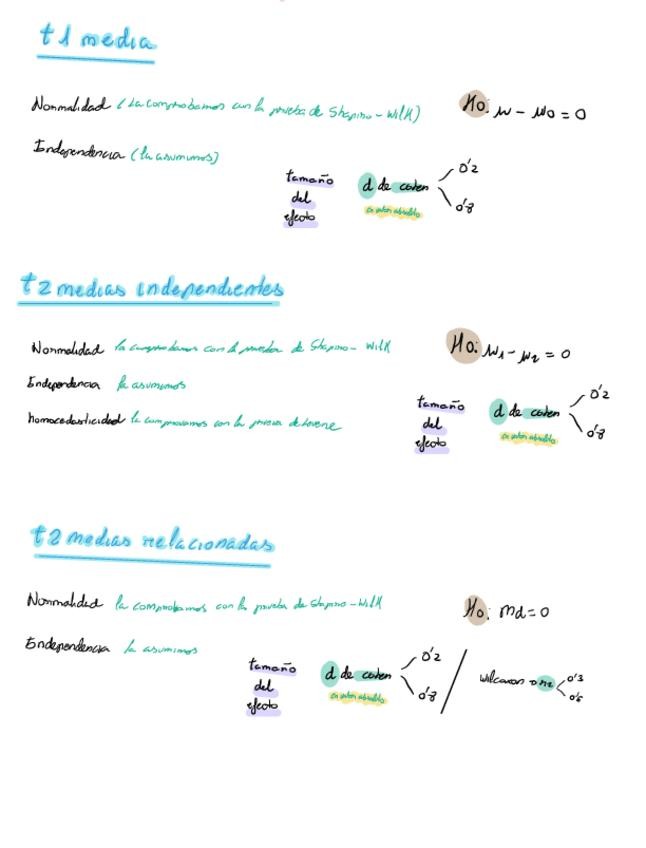 t 1 media
Normalidad (La comprobamos con la prueba de Shapiro-Wilk)
H0: μ - μ0 = 0
Independencia (la asumimos)
tamaño del efecto
d de cohen
en valor absoluto
0'2
0'8
t 2 medias independientes
Normalidad la comprobamos con la prueba de Shapiro-Wilk
H0: μ1 - μ2 = 0
Independencia la asumimos
homocedasticidad la comprobamos con la prueba de levene
tamaño del efecto
d de cohen
en valor absoluto
0'2
0'8
t 2 medias relacionadas
Normalidad la comprobamos con la prueba de Shapiro-Wilk
H0: md = 0
Independencia la asumimos
tamaño del efecto
d de cohen
en valor absoluto
0'2
0'8
/
wilcoxon
0'3
0'5